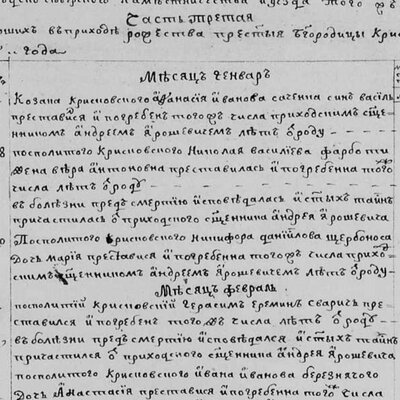 Часть третая
вприходѣ рождества престыя бгородицы
года
Мѣсяцъ генваръ
Козака Крисновского афанасія иванова саченна синъ василь
преставися и погребенъ того жъ числа приходскимъ сще-
нникомъ андреемъ ярошевичемъ лѣтъ ѿроду
посполитого Крисновского Николая василіева
жена вѣра антоновна преставилась и погребенна тогожъ
числа лѣтъ ѿроду
въ болѣзни предъ смертію исповѣдалась и стыхъ таинъ
причастилась ѿ приходского сщенника андрея ярошевича
Посполитого Крисновского Никифора даніилова щербоноса
дочъ марія преставися и погребенна того жъ числа прихо-
скимъ сщенникомъ андреемъ ярошевичемъ лѣтъ ѿроду
Мѣсяцъ февраль
посполитій Крисновскій герасимъ ереминъ сваричъ пре-
ставился и погребенъ того жъ числа лѣтъ ѿроду
въ болѣзни предъ смертію исповѣдался и стыхъ таинъ
причастился ѿ приходского сщенника андрея ярошевича
посполитого Крисновского ивана иванова березнячого
дочъ анастасія преставися и погребенна тогожъ числа